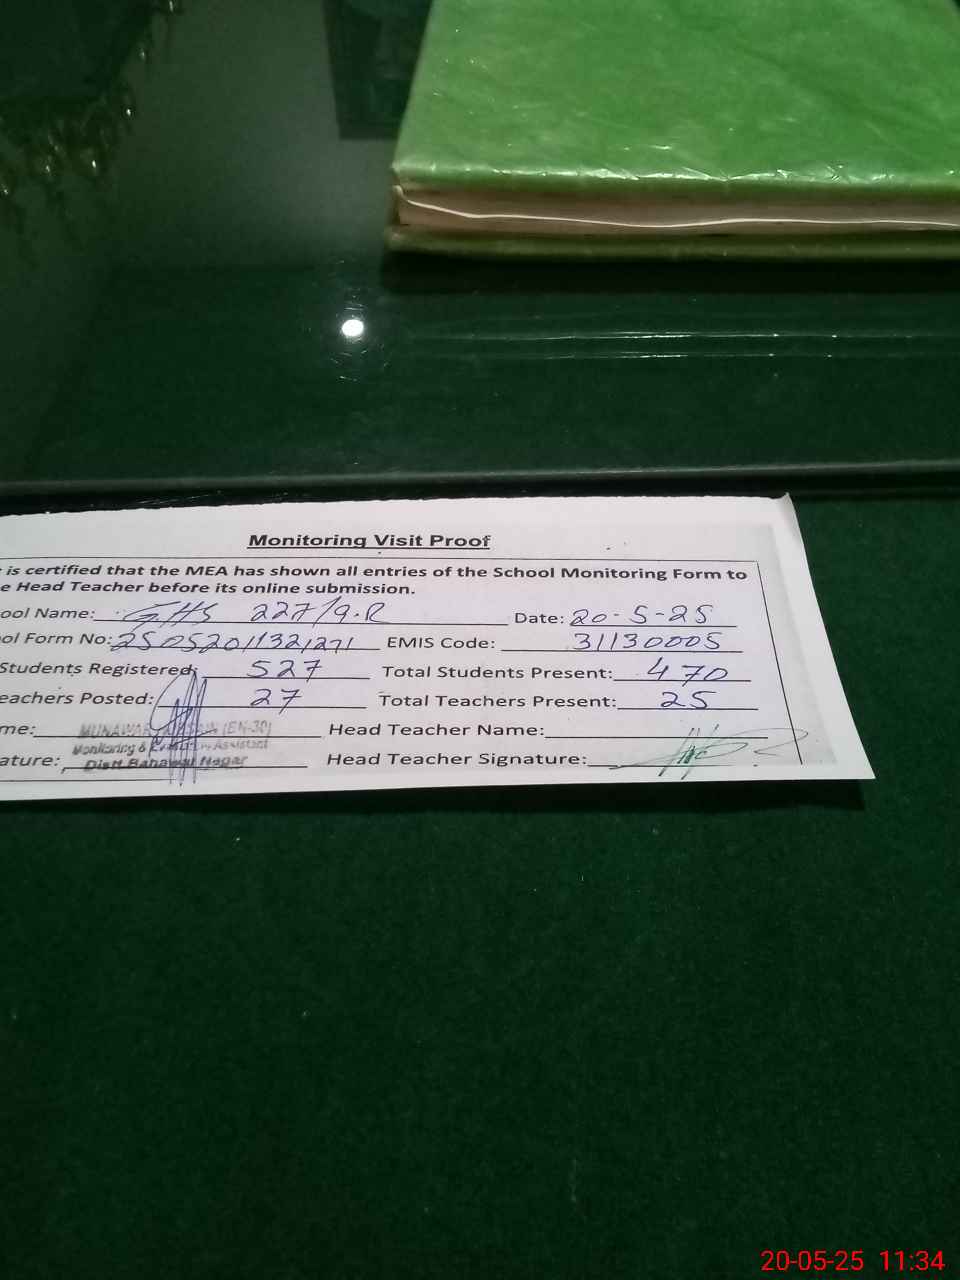 Monitoring Visit Proof
is certified that the MEA has shown all entries of the School Monitoring Form to
e Head Teacher before its online submission.
ool Name: GHS 227/9.R Date: 20-5-25
ol Form No: 25052011321271 EMIS Code: 31130005
Students Registered: 527 Total Students Present: 470
eachers Posted: 27 Total Teachers Present: 25
me: MUNAWAR (EN-30) Head Teacher Name:
Monitoring & Assistant
ature: Distt Bahawal Nagar Head Teacher Signature:
20-05-25 11:34